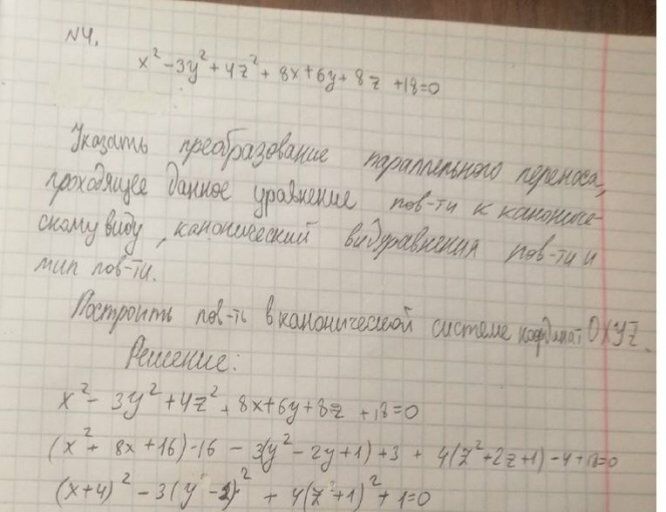 N4.
x² - 3y² + 4z² + 8x + 6y + 8z + 18 = 0
Указать преобразование параллельного переноса,
проходящее данное уравнение пов-ти к канониче-
скому виду, канонический вид уравнения пов-ти и
тип пов-ти.
Построить пов-ть в канонической системе координат OXYZ.
Решение:
x² - 3y² + 4z² + 8x + 6y + 8z + 18 = 0
(x² + 8x + 16) - 16 - 3(y² - 2y + 1) + 3 + 4(z² + 2z + 1) - 4 + 18 = 0
(x + 4)² - 3(y - 1)² + 4(z + 1)² + 1 = 0